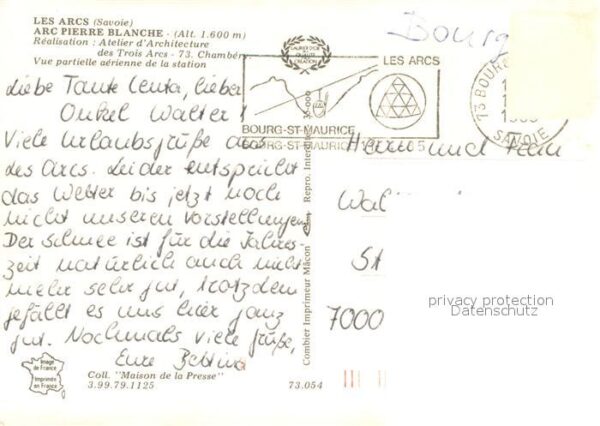 LES ARCS (Savoie)
ARC PIERRE BLANCHE - (Alt. 1.600 m)
Réalisation : Atelier d'Architecture
des Trois Arcs - 73. Chambéry
Vue partielle aérienne de la station
Bourg
LAURIER D'OR
QUALITE
CREATION
LES ARCS
BOURG-ST-MAURICE
73 BOURG
SAVOIE
Liebe Tante Centa, lieber
Onkel Walter!
Viele Urlaubsgrüße aus
des Arcs. Leider entspricht
das Wetter bis jetzt noch
nicht unseren Vorstellungen.
Der Schnee ist für die Jahres
zeit natürlich auch nicht
mehr sehr gut, trotzdem
gefällt es uns hier ganz
gut. Nochmals viele Grüße,
Eure Bettina
Combier Imprimeur Mâcon
Herrn und Frau
Wal
St
7000
privacy protection
Datenschutz
Image
de France
Imprimée
en France
Coll. "Maison de la Presse"
3.99.79.1125
73.054